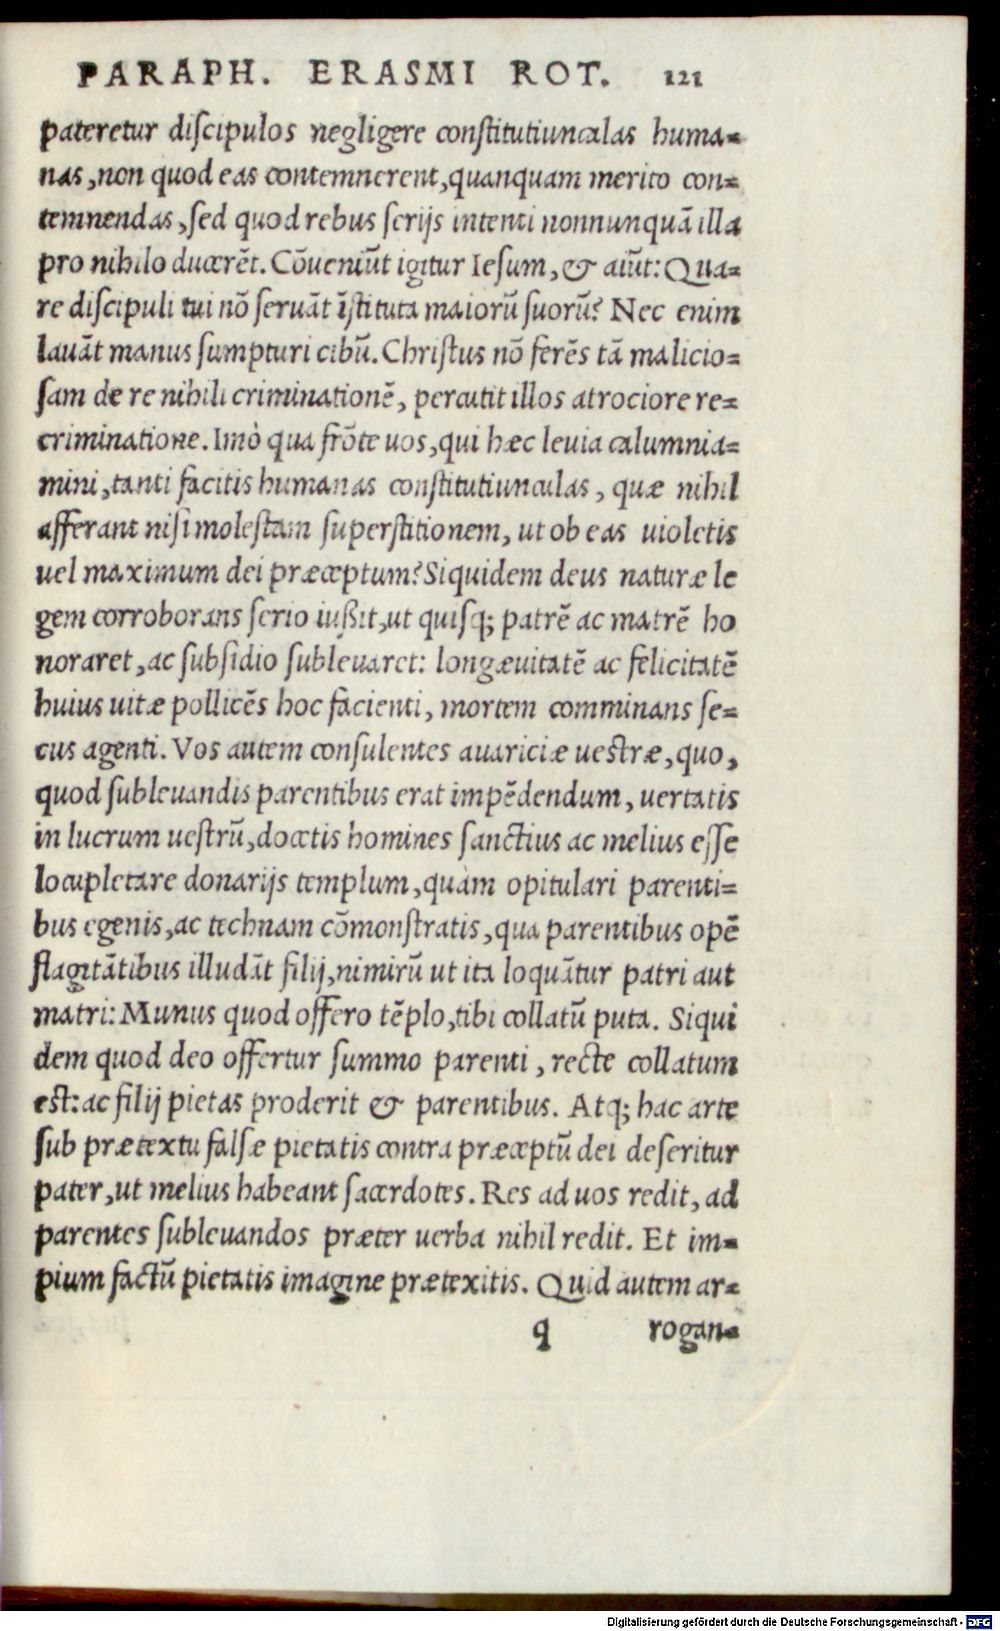 PARAPH. ERASMI ROT. 121
pateretur diſcipulos negligere conſtitutiunculas huma=
nas, non quod eas contemnerent, quanquam merito con=
temnendas, ſed quod rebus ſerijs intenti nonnunquã illa
pro nihilo ducerẽt. Cõueniũt igitur Ieſum, & aiũt: Qua=
re diſcipuli tui nõ ſeruãt ĩſtituta maiorũ ſuorũ? Nec enim
lauãt manus ſumpturi cibũ. Chriſtus nõ ferẽs tã malicio=
ſam de re nihili criminationẽ, percutit illos atrociore re=
criminatione. Imò qua frõte uos, qui hæc leuia calumnia=
mini, tanti facitis humanas conſtitutiunculas, quæ nihil
afferant niſi moleſtam ſuperſtitionem, ut ob eas uioletis
uel maximum dei præceptum? Siquidem deus naturæ le
gem corroborans ſerio iußit, ut quiſq; patrẽ ac matrẽ ho
noraret, ac ſubſidio ſubleuaret: longæuitatẽ ac felicitatẽ
huius uitæ pollicẽs hoc facienti, mortem comminans ſe=
cus agenti. Vos autem conſulentes auariciæ ueſtræ, quo,
quod ſubleuandis parentibus erat impẽdendum, uertatis
in lucrum ueſtrũ, docetis homines ſanctius ac melius eſſe
locupletare donarijs templum, quàm opitulari parenti=
bus egenis, ac technam cõmonſtratis, qua parentibus opẽ
flagitãtibus illudãt filij, nimirũ ut ita loquãtur patri aut
matri: Munus quod offero tẽplo, tibi collatũ puta. Siqui
dem quod deo offertur ſummo parenti, recte collatum
eſt: ac filij pietas proderit & parentibus. Atq; hac arte
ſub prætextu falſæ pietatis contra præceptũ dei deſeritur
pater, ut melius habeant ſacerdotes. Res ad uos redit, ad
parentes ſubleuandos præter uerba nihil redit. Et im=
pium factũ pietatis imagine prætexitis. Quid autem ar=
q rogan=
Digitalisierung gefördert durch die Deutsche Forschungsgemeinschaft - DFG